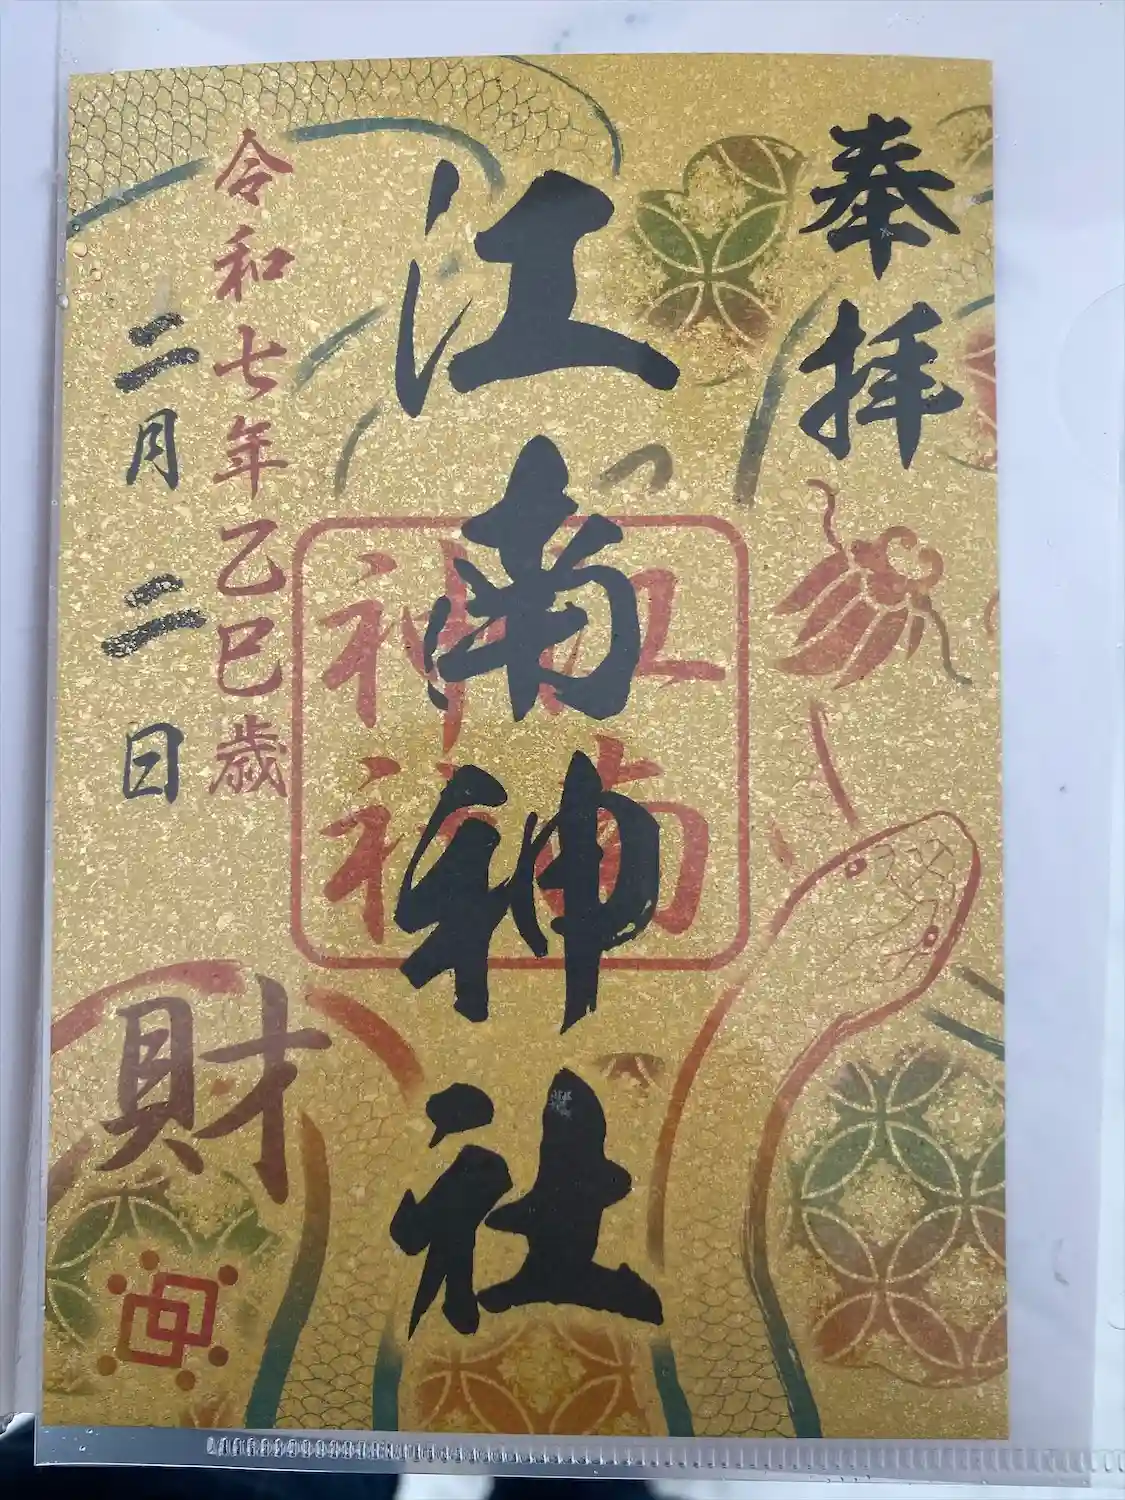 奉拝
江南神社
江南神社
令和七年乙巳歳
二月二日
財